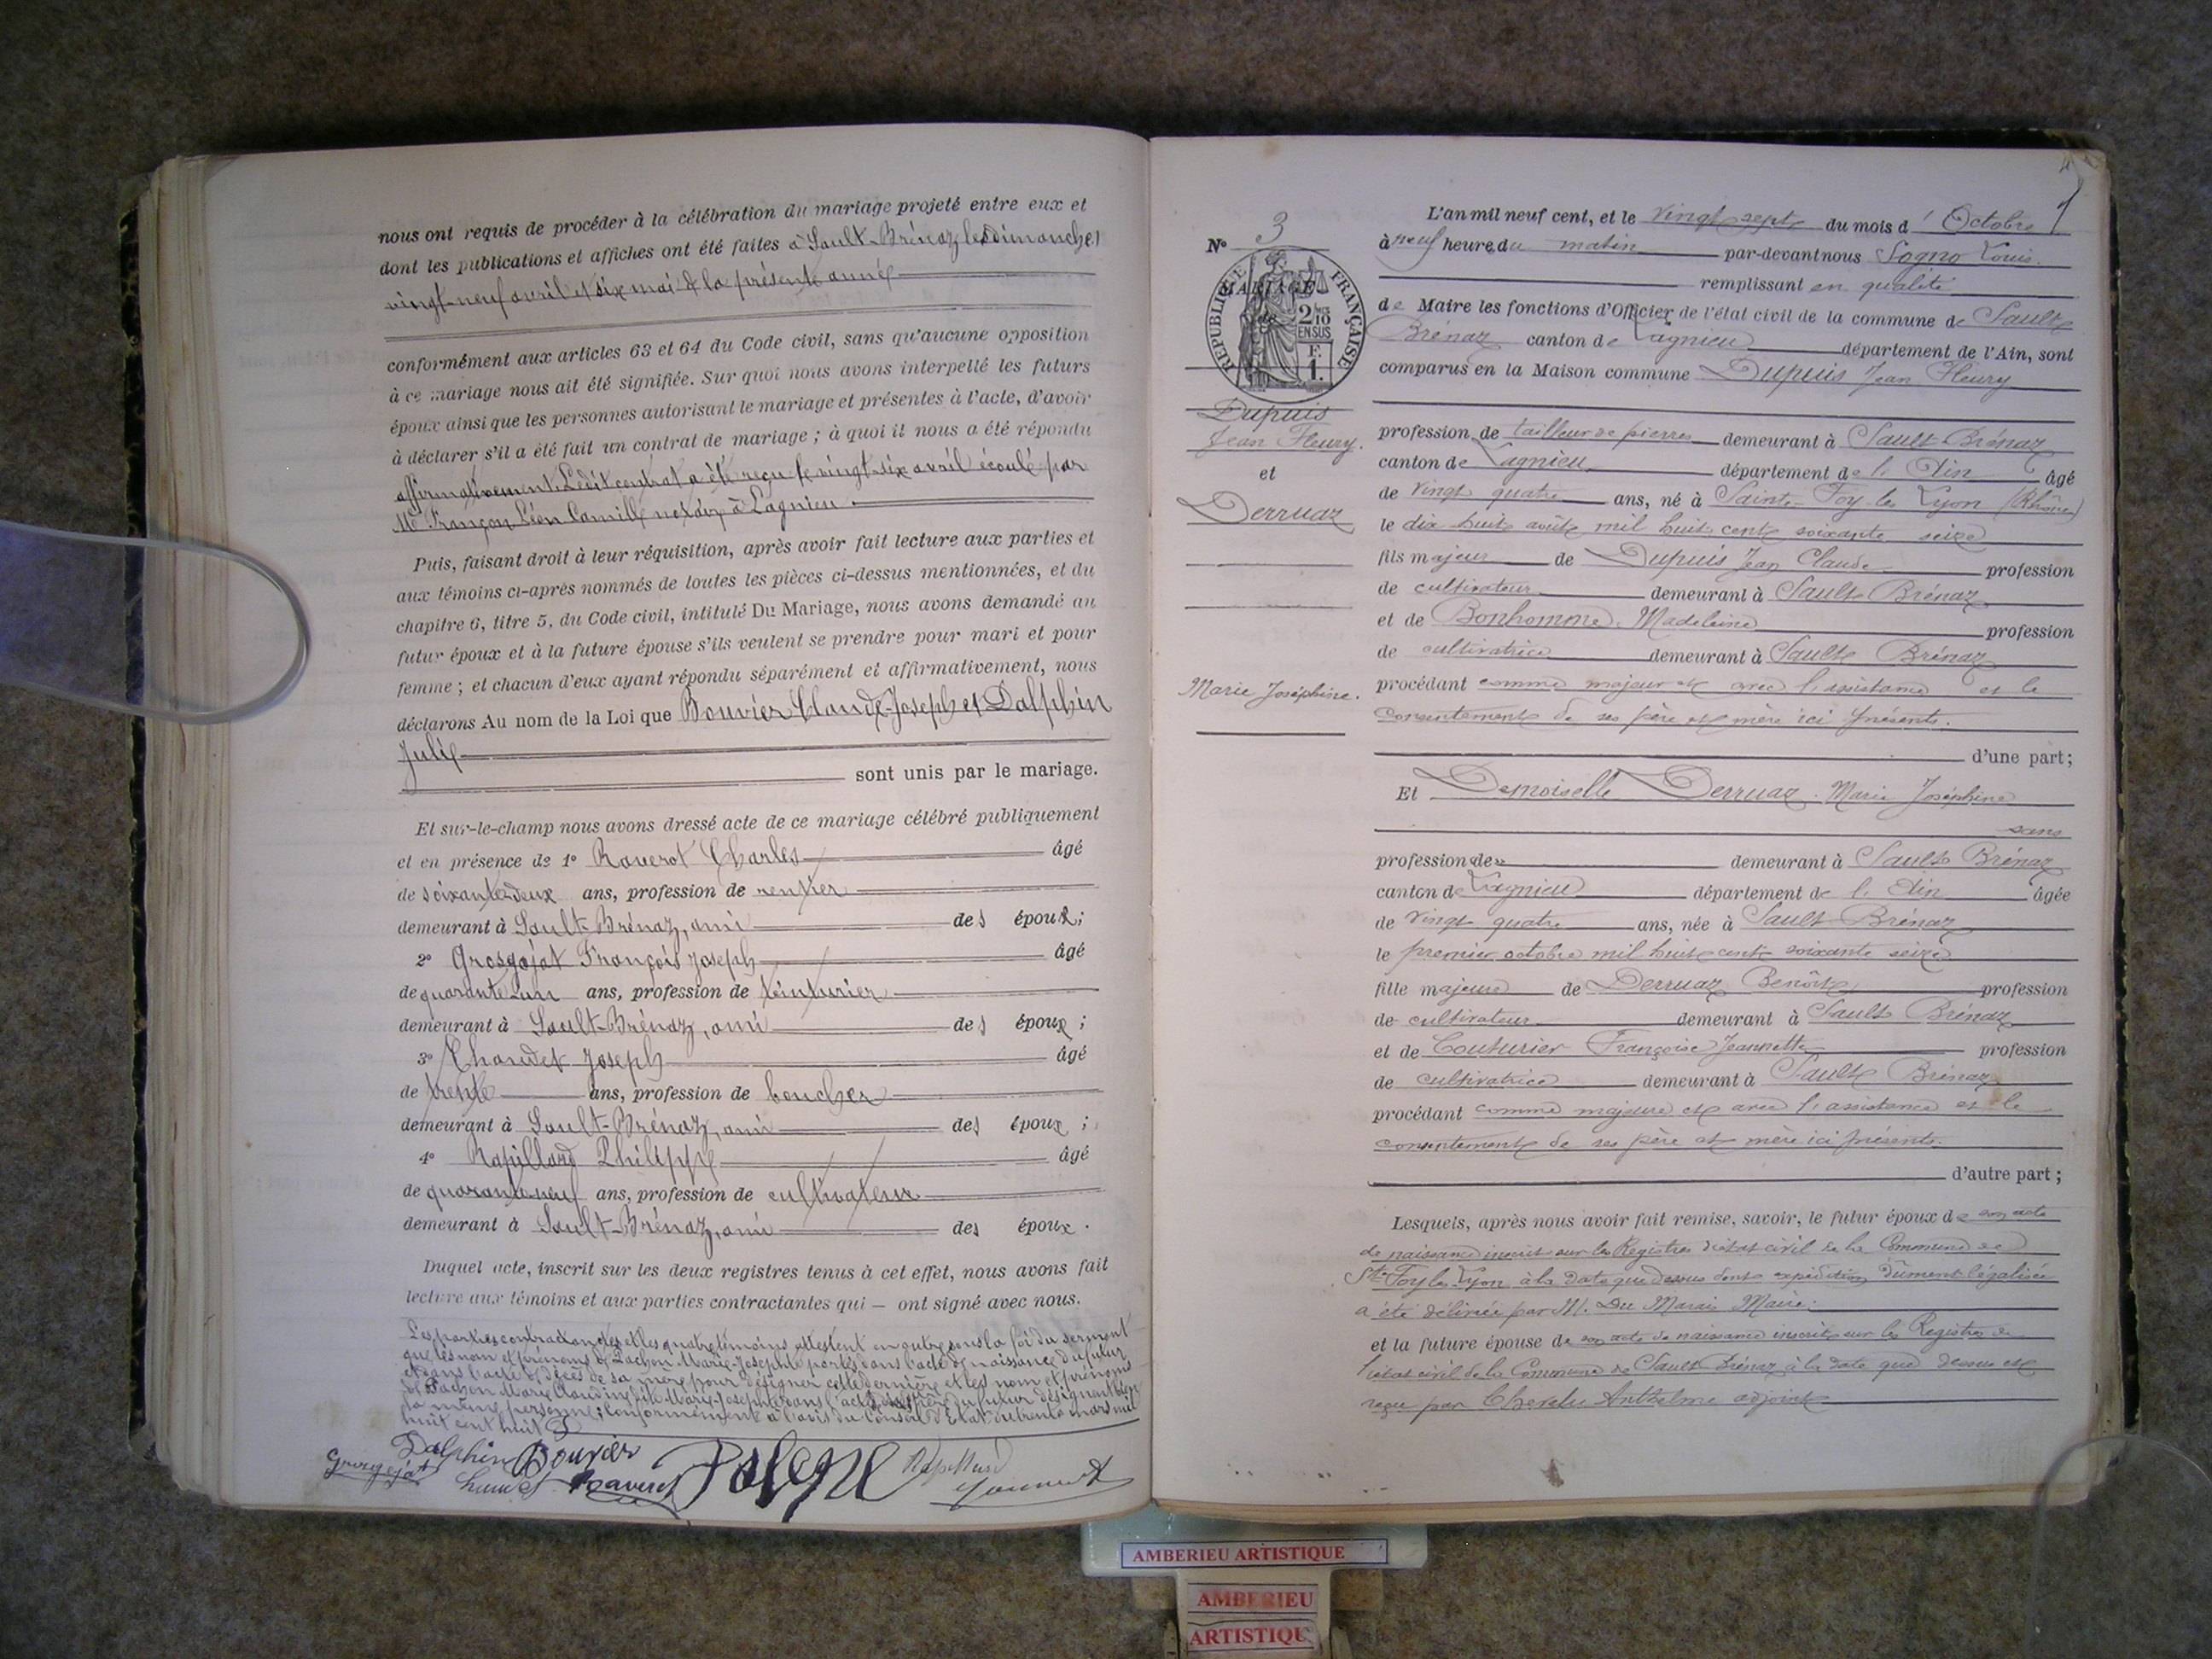 nous ont requis de procéder à la célébration du mariage projeté entre eux et
dont les publications et affiches ont été faites à Sault-Brénaz les dimanches
vingt-neuf avril et six mai de la présente année
conformément aux articles 63 et 64 du Code civil, sans qu'aucune opposition
à ce mariage nous ait été signifiée. Sur quoi nous avons interpellé les futurs
époux ainsi que les personnes autorisant le mariage et présentes à l'acte, d'avoir
à déclarer s'il a été fait un contrat de mariage ; à quoi il nous a été répondu
affirmativement. Ledit contrat a été reçu le vingt-six avril écoulé par
Me Françon Léon Camille notaire à Lagnieu
Puis, faisant droit à leur réquisition, après avoir fait lecture aux parties et
aux témoins ci-après nommés de toutes les pièces ci-dessus mentionnées, et du
chapitre 6, titre 5, du Code civil, intitulé Du Mariage, nous avons demandé au
futur époux et à la future épouse s'ils veulent se prendre pour mari et pour
femme ; et chacun d'eux ayant répondu séparément et affirmativement, nous
déclarons Au nom de la Loi que Bouvier Claude-Joseph et Dalphin
Julie
sont unis par le mariage.
Et sur-le-champ nous avons dressé acte de ce mariage célébré publiquement
et en présence de 1° Raverot Charles âgé
de soixante-deux ans, profession de rentier
demeurant à Sault-Brénaz, ami des époux ;
2° Grosgojat François Joseph âgé
de quarante-un ans, profession de teinturier
demeurant à Sault-Brénaz, ami des époux ;
3° Chaudet Joseph âgé
de trente ans, profession de boucher
demeurant à Sault-Brénaz, ami des époux ;
4° Rapillard Philippe âgé
de quarante-neuf ans, profession de cultivateur
demeurant à Sault-Brénaz, ami des époux .
Duquel acte, inscrit sur les deux registres tenus à cet effet, nous avons fait
lecture aux témoins et aux parties contractantes qui — ont signé avec nous.
Les parties contractantes et les quatre témoins attestent en outre sous la foi du serment
que les nom et prénoms de Pachon Marie-Josephte portés dans l'acte de naissance du futur
et dans l'acte de décès de sa mère pour désigner cette dernière et les nom et prénoms
de Pachon Marie Claudine dite Marie-Josephte dans l'acte du futur désignent bien
la même personne ; conformément à l'avis du Conseil d'Etat du trente mars mil
huit cent huit
Dalphin Bouvier
Grosgojat Raverot Rapillard
N° 3
MARIAGE
RÉPUBLIQUE FRANÇAISE
2/10 EN SUS
F. 1.
Dupuis
Jean Fleury.
et
Derruaz
Marie Joséphine.
L'an mil neuf cent, et le vingt sept du mois d'Octobre
à neuf heure du matin par-devant nous Sogno Louis.
remplissant en qualité
de Maire les fonctions d'Officier de l'état civil de la commune de Sault
Brénaz canton de Lagnieu département de l'Ain, sont
comparus en la Maison commune Dupuis Jean Fleury
profession de tailleur de pierres demeurant à Sault-Brénaz
canton de Lagnieu département de l'Ain âgé
de vingt quatre ans, né à Sainte-Foy-les-Lyon (Rhône)
le dix huit août mil huit cent soixante seize
fils majeur de Dupuis Jean Claude profession
de cultivateur demeurant à Sault Brénaz
et de Bonhomme Madeleine profession
de cultivatrice demeurant à Sault Brénaz
procédant comme majeur et avec l'assistance et le
consentement de ses père et mère ici présents.
d'une part ;
Et Demoiselle Derruaz Marie Joséphine
sans
profession de demeurant à Sault Brénaz
canton de Lagnieu département de l'Ain âgée
de vingt quatre ans, née à Sault-Brénaz
le premier octobre mil huit cent soixante seize
fille majeure de Derruaz Benoît profession
de cultivateur demeurant à Sault Brénaz
et de Couturier Françoise Jeannette profession
de cultivatrice demeurant à Sault Brénaz
procédant comme majeure et avec l'assistance et le
consentement de ses père et mère ici présents.
d'autre part ;
Lesquels, après nous avoir fait remise, savoir, le futur époux de son acte
de naissance inscrit sur les Registres d'état civil de la Commune de
Ste Foy les Lyon à la date que dessus dont expédition dûment légalisée
a été délivrée par M. Du Marais Maire.
et la future épouse de son acte de naissance inscrit sur les Registres de
l'état civil de la Commune de Sault Brénaz à la date que dessus et
reçu par Anthelme adjoint
AMBERIEU ARTISTIQUE
AMBERIEU
ARTISTIQUE